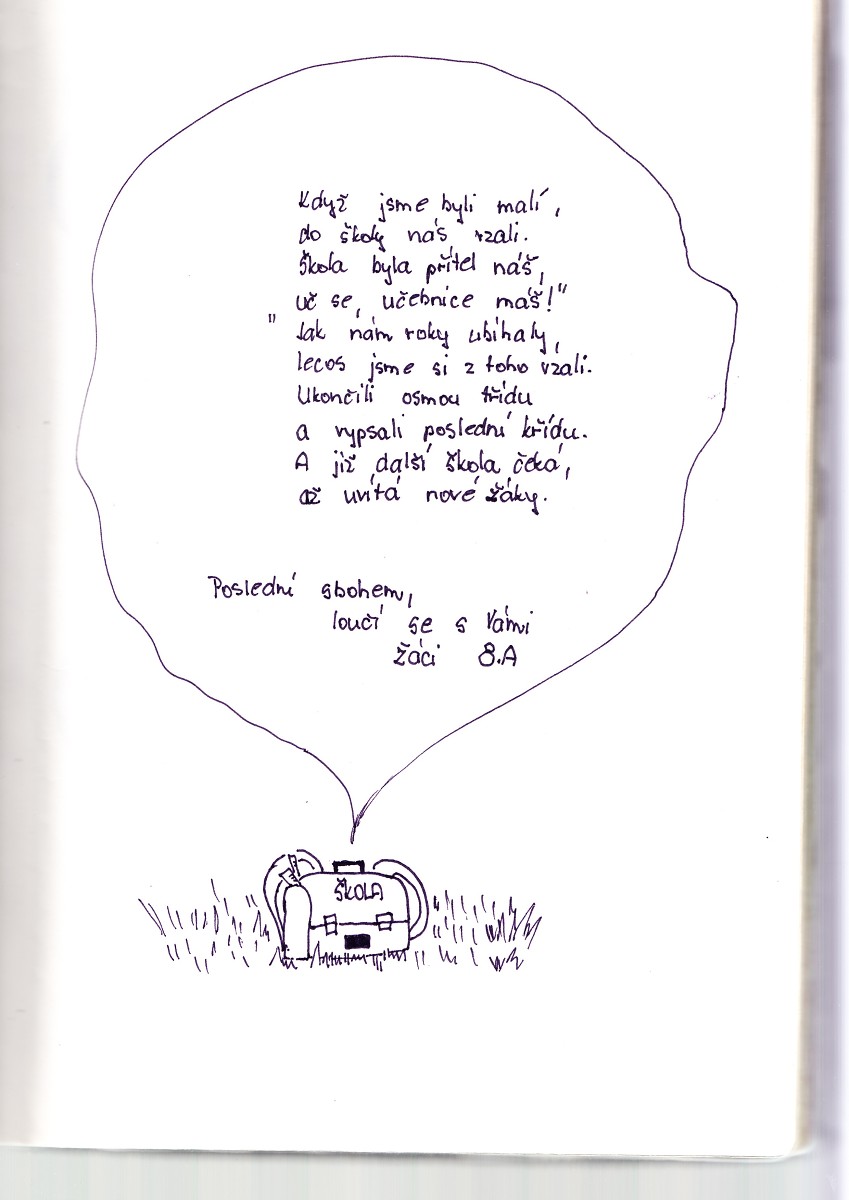 Když jsme byli malí,
do školy nás vzali.
Škola byla přítel náš,
uč se, učebnice máš!"
" Jak nám roky ubíhaly,
lecos jsme si z toho vzali.
Ukončili osmou třídu
a vypsali poslední křídu.
A již další škola čeká,
až uvítá nové žáky.
Poslední sbohem,
loučí se s Vámi
žáci 8.A
ŠKOLA